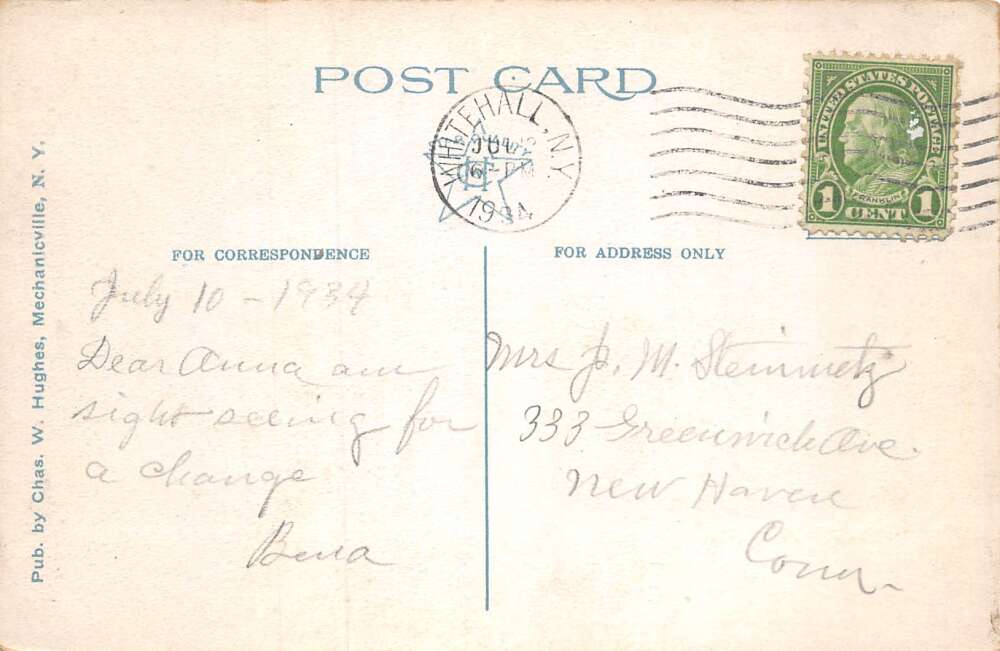 POST CARD
WHITEHALL, N.Y.
JUL
6-PM
1934
UNITED STATES POSTAGE
FRANKLIN
1 CENT 1
FOR CORRESPONDENCE
FOR ADDRESS ONLY
July 10 - 1934
Dear Anna am
sight seeing for
a change
Bena
Mrs J. M. Steinmetz
333 Greenwich Ave.
New Haven
Conn
Pub. by Chas. W. Hughes, Mechanicville, N. Y.